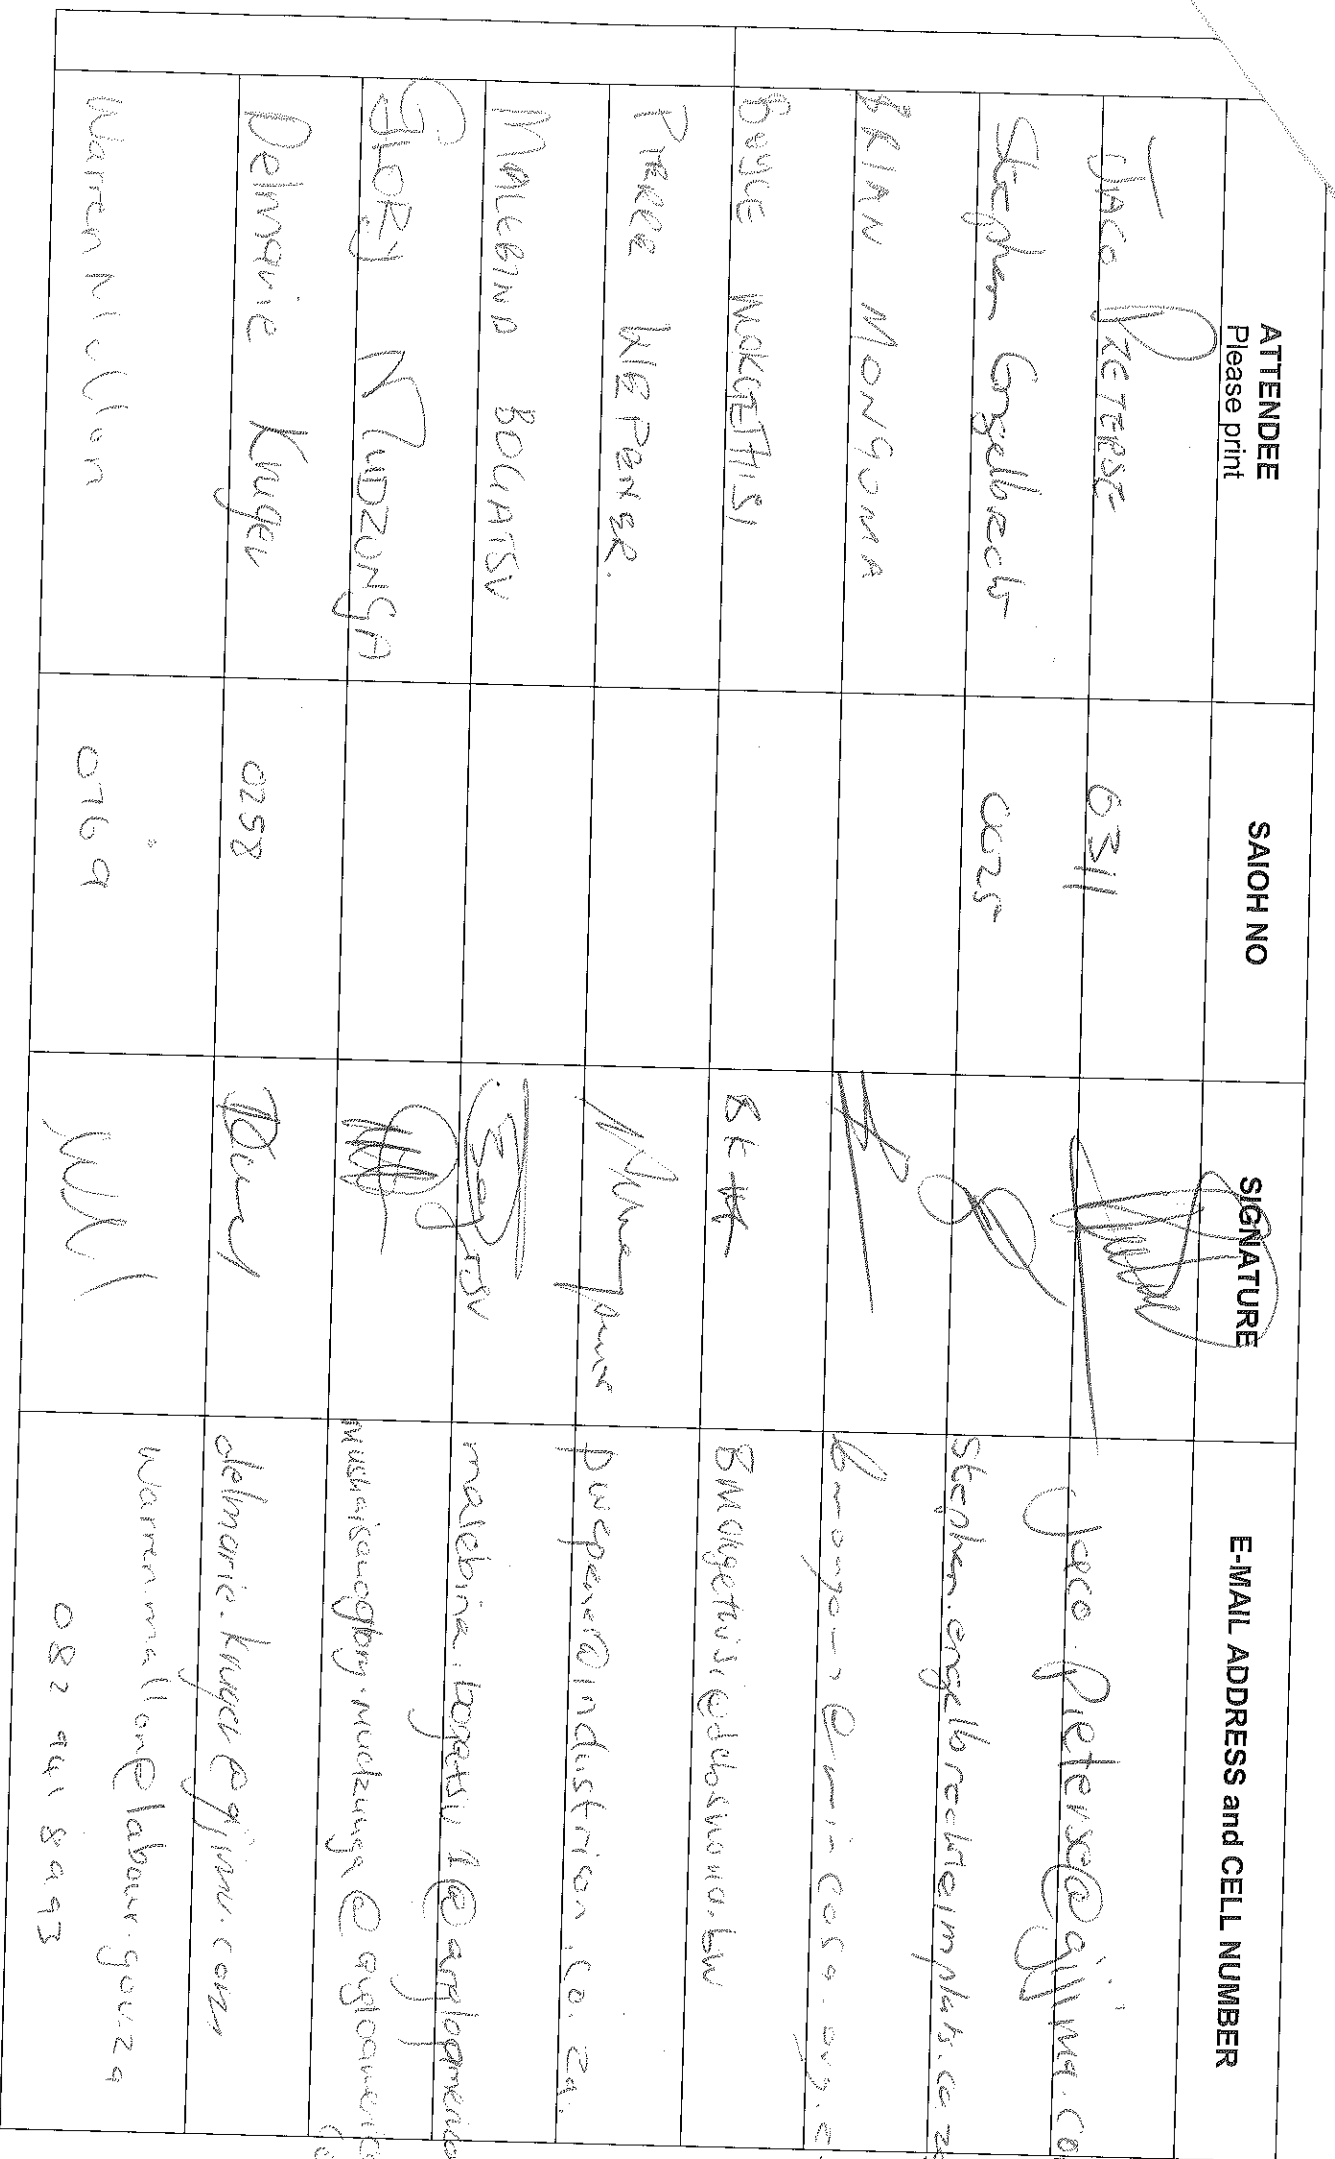 ATTENDEE SAIOH NO SIGNATURE E-MAIL ADDRESS and CELL NUMBER
Please print
JACO PIETERSE 0311 Jaco.Pieterse@gijima.co
Stephan Engelbrecht 0025 Stephan.engelbrecht@implats.co.z
BRIAN MONGOMA
BOYCE MOKGETHISI BKM BMokgethisi@debswana.bw
PIERRE WIEPENER. pwepener@industrison.co.za.
MALEBINA BOGATSU malebina.bogatsu1@angloamerica
GLORY MUDZUNGA mushaisanoglory.mudzunga@angloamerica
co
Delmarie Kruger 0258 delmarie.kruger@gijima.com
Warren Mallon 0769 warren.mallon@labour.gov.za
082 941 8993